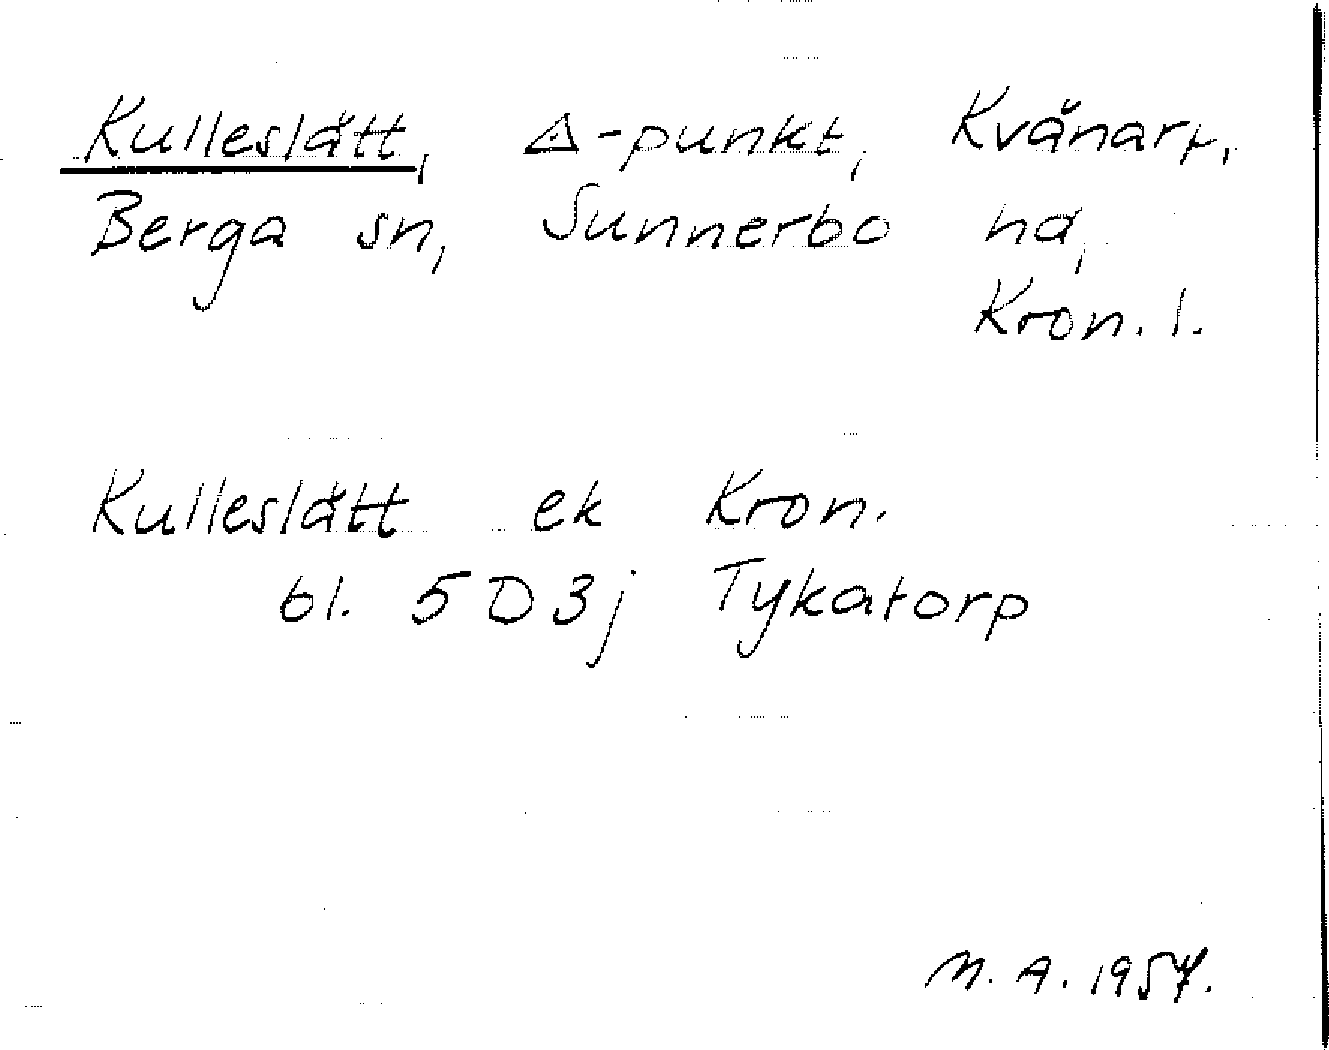 Kulleslätt, ∆-punkt, Kvänarp,
Berga sn, Sunnerbo hd,
Kron. l.
Kulleslätt ek Kron.
bl. 5D3j Tykatorp
M. A. 1957.